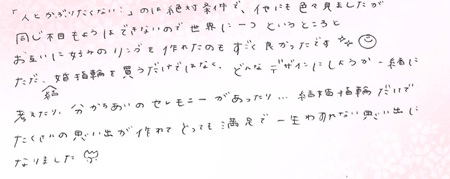 「人とかぶりたくない…」のは絶対条件で、他にも色々見ましたが
同じ木目もようはできないので世界に一つというところと
お互いに好みのリングを作れたのもすごく良かったです
ただ、結婚指輪を買うだけではなく、どんなデザインにしようか一緒に
考えたり、分かちあいのセレモニーがあったり…結婚指輪だけで
たくさんの思い出が作れてとっても満足で一生わすれない思い出に
なりました